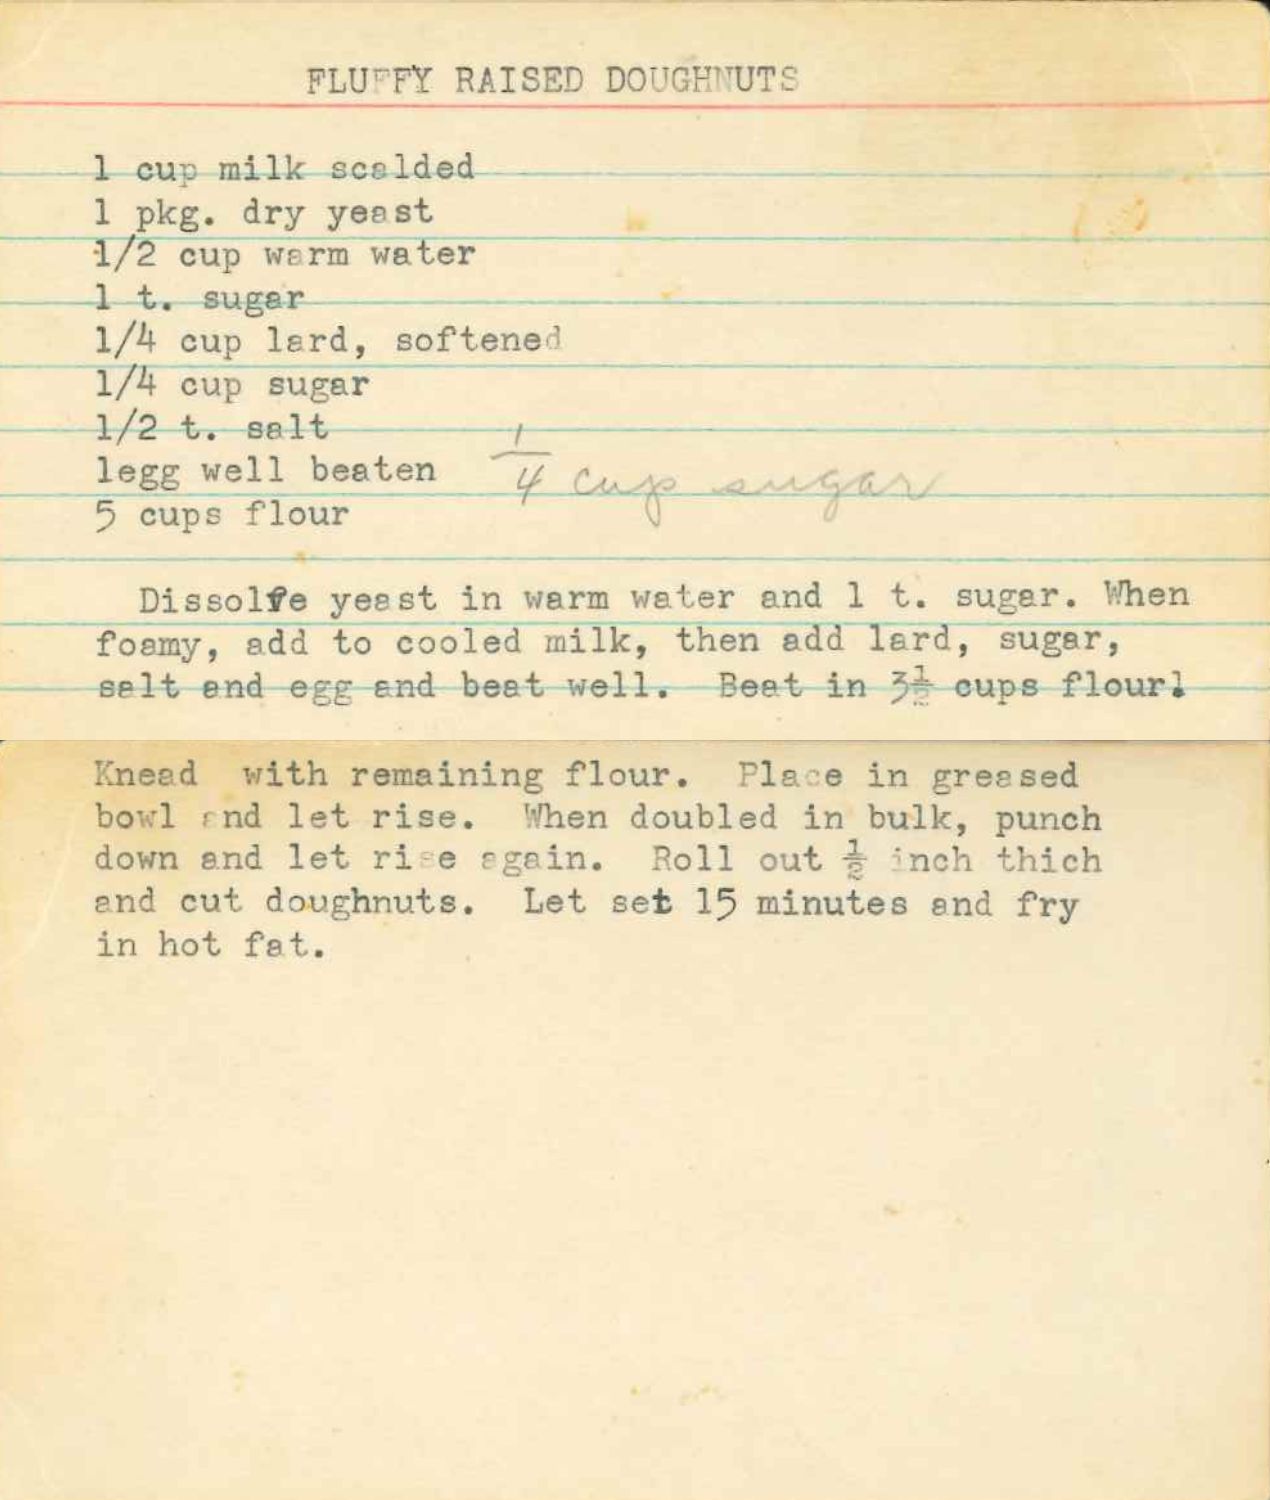 FLUFFY RAISED DOUGHNUTS
1 cup milk scalded
1 pkg. dry yeast
1/2 cup warm water
1 t. sugar
1/4 cup lard, softened
1/4 cup sugar
1/2 t. salt
1egg well beaten
1/4 cup sugar
5 cups flour
Dissolfe yeast in warm water and 1 t. sugar. When
foamy, add to cooled milk, then add lard, sugar,
salt and egg and beat well. Beat in 3½ cups flour.
Knead with remaining flour. Place in greased
bowl and let rise. When doubled in bulk, punch
down and let rise again. Roll out ½ inch thich
and cut doughnuts. Let set 15 minutes and fry
in hot fat.